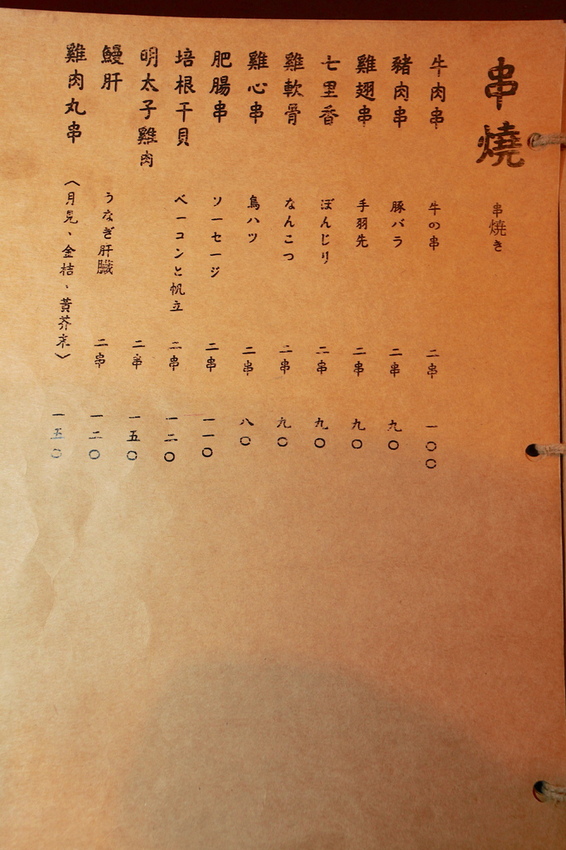 串燒 串焼き
牛肉串 牛の串 二串 一〇〇
豬肉串 豚バラ 二串 九〇
雞翅串 手羽先 二串 九〇
七里香 ぼんじり 二串 九〇
雞軟骨 なんこつ 二串 九〇
雞心串 鳥ハツ 二串 八〇
肥腸串 ソーセージ 二串 一一〇
培根干貝 ベーコンと帆立 二串 一二〇
明太子雞肉 二串 一五〇
鰻肝 うなぎ肝臓 二串 一二〇
雞肉丸串 〈月見、金桔、黃芥末〉 一五〇